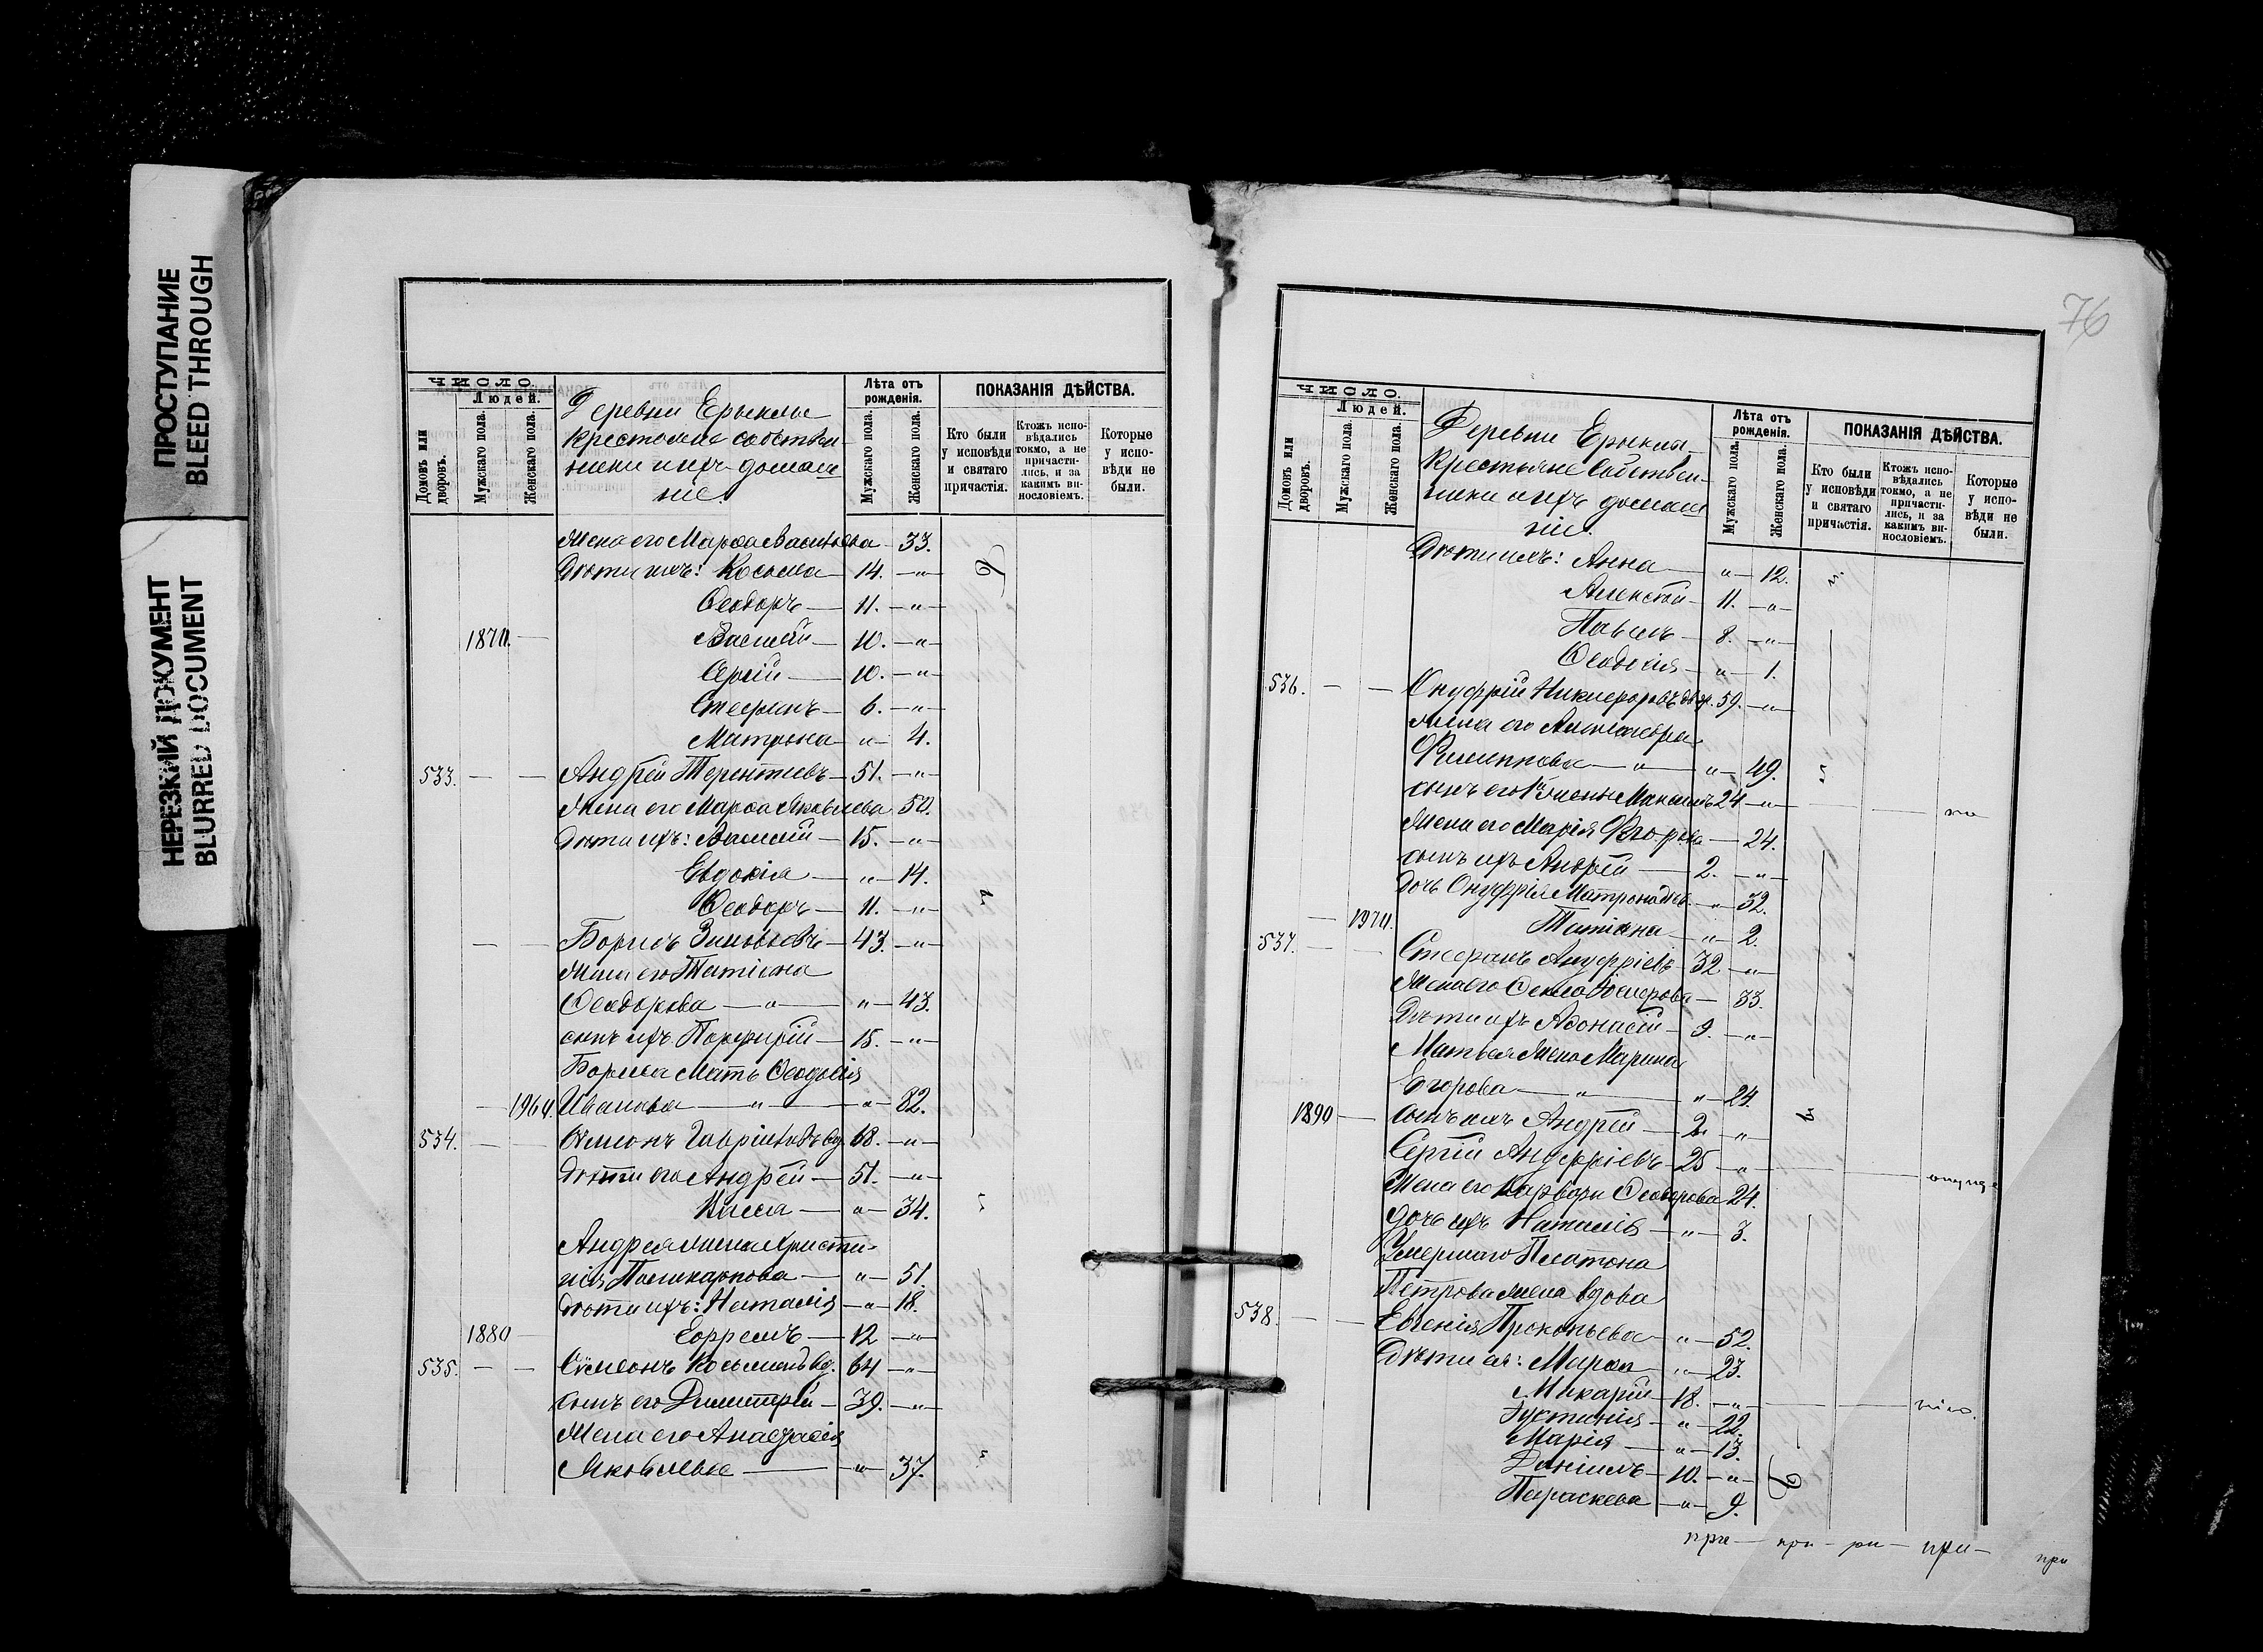 ПРОСТУПАНИЕ
BLEED THROUGH
НЕРЕЗКИЙ ДОКУМЕНТ
BLURRED DOCUMENT
ЧИСЛО.
Людей.
Домовъ или дворовъ.
Мужскаго пола.
Женскаго пола.
Деревни Ерыклы
крестьяне собствен-
ники и ихъ домаш
ніе.
Лѣта отъ рожденія.
Мужскаго пола.
Женскаго пола.
ПОКАЗАНІЯ ДѢЙСТВА.
Кто были у исповѣди и святаго причастія.
Ктожъ испо-вѣдались токмо, а не причасти-лись, и за какимъ ви-нословіемъ.
Которые у испо-вѣди не были.
Жена его Марѳа 33.
Дѣти ихъ: Косьма — 14. —"—
Ѳеодоръ — 11. —"—
1870. — Василій — 10. —"—
Сергій — 10. —"—
Стефанъ — 6. —"—
Матрона — "— 4.
533. — — Андрей Терентіевъ — 51. —"—
Жена его Марѳа Яковлева 50.
Дѣти ихъ: Василій — 15. —"—
Евдокія — "— 14.
Ѳеодоръ — 11. —"—
— — Борисъ Зиновьевъ — 43. —"—
Жена его Татіана
Ѳеодорова — " — " — 43.
сынъ ихъ Порфирій — 15. —"—
Бориса Мать Ѳеодосія
— 1960. Иванова — " — "— 82.
534. — — Симеонъ Гавріиловъ вд. 68. —"—
Дѣти его Андрей — 51. —"—
Васса — "— 34.
Андрея жена Христи-
нія Поликарпова — "— 51.
Дѣти ихъ: Наталія — "— 18.
1880 — Ефремъ — 12 —"—
535. — — Симеонъ Косьминъ вд. 64 —"—
сынъ его Димитрій — 39. —"—
Жена его Анастасія
Яковлева — "— 37.
76
ЧИСЛО.
Людей.
Домовъ или дворовъ.
Мужскаго пола.
Женскаго пола.
Деревни Ерыклы
Крестьяне Собствен-
ники и ихъ домаш
ніе.
Лѣта отъ рожденія.
Мужскаго пола.
Женскаго пола.
ПОКАЗАНІЯ ДѢЙСТВА.
Кто были у исповѣди и святаго причастія.
Ктожъ испо-вѣдались токмо, а не причасти-лись, и за какимъ ви-нословіемъ.
Которые у испо-вѣди не были.
Дѣти ихъ: Анна — "— 12.
Алексѣй — 11. —"—
Павелъ — 8. —"—
Ѳеодосія — "— 1.
536. — — Онуфрій Никифоровъ 59. —"—
жена его Александра
Филиппова — " — "— 49.
сынъ его Максимъ 24 —"—
Жена его Марія Егорова — 24.
сынъ ихъ Андрей — 2. —"—
дочь Онуфрія Матрона 32.
— 1970. Татіана — "— 2.
537. — — Стефанъ Ануфріевъ 32 —"—
Жена его Ѳекла — 33.
Дѣти ихъ Аѳонасій — 9. —"—
Матвея Жена Марина
Егорова — " — "— 24.
1890 — сынъ ихъ Андрей — 2. —"—
Сергій Ануфріевъ — 25 —"—
Жена его Варвара Ѳеодорова 24.
дочь ихъ Наталія — "— 3.
Умершаго Платона
Петрова жена вдова
538. — — Евгенія Прокопьева — "— 52.
Дѣти ея: Марѳа — "— 23.
Макарій — 18. —"—
Іустинія — "— 22.
Марія — "— 13.
Даніилъ — 10. —"—
Параскева — "— 9.
при — при — ри — при — при